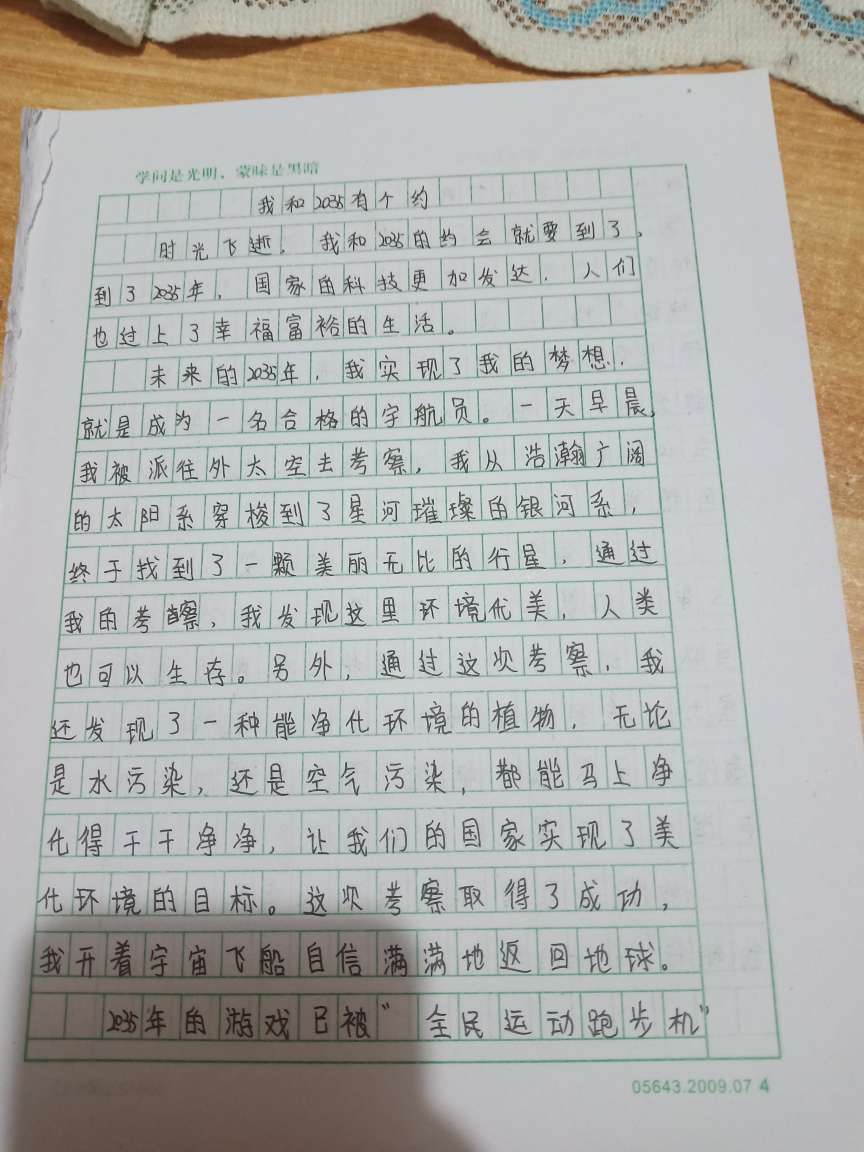 学问是光明，蒙昧是黑暗
我和2035有个约
时光飞逝，我和2035的约会就要到了，
到了2035年，国家的科技更加发达，人们
也过上了幸福富裕的生活。
未来的2035年，我实现了我的梦想，
就是成为一名合格的宇航员。一天早晨，
我被派往外太空去考察，我从浩瀚广阔
的太阳系穿梭到了星河璀璨的银河系，
终于找到了一颗美丽无比的行星，通过
我的考察，我发现这里环境优美，人类
也可以生存。另外，通过这次考察，我
还发现了一种能净化环境的植物，无论
是水污染，还是空气污染，都能马上净
化得干干净净，让我们的国家实现了美
化环境的目标。这次考察取得了成功，
我开着宇宙飞船自信满满地返回地球。
2035年的游戏已被“全民运动跑步机”
05643.2009.07 4